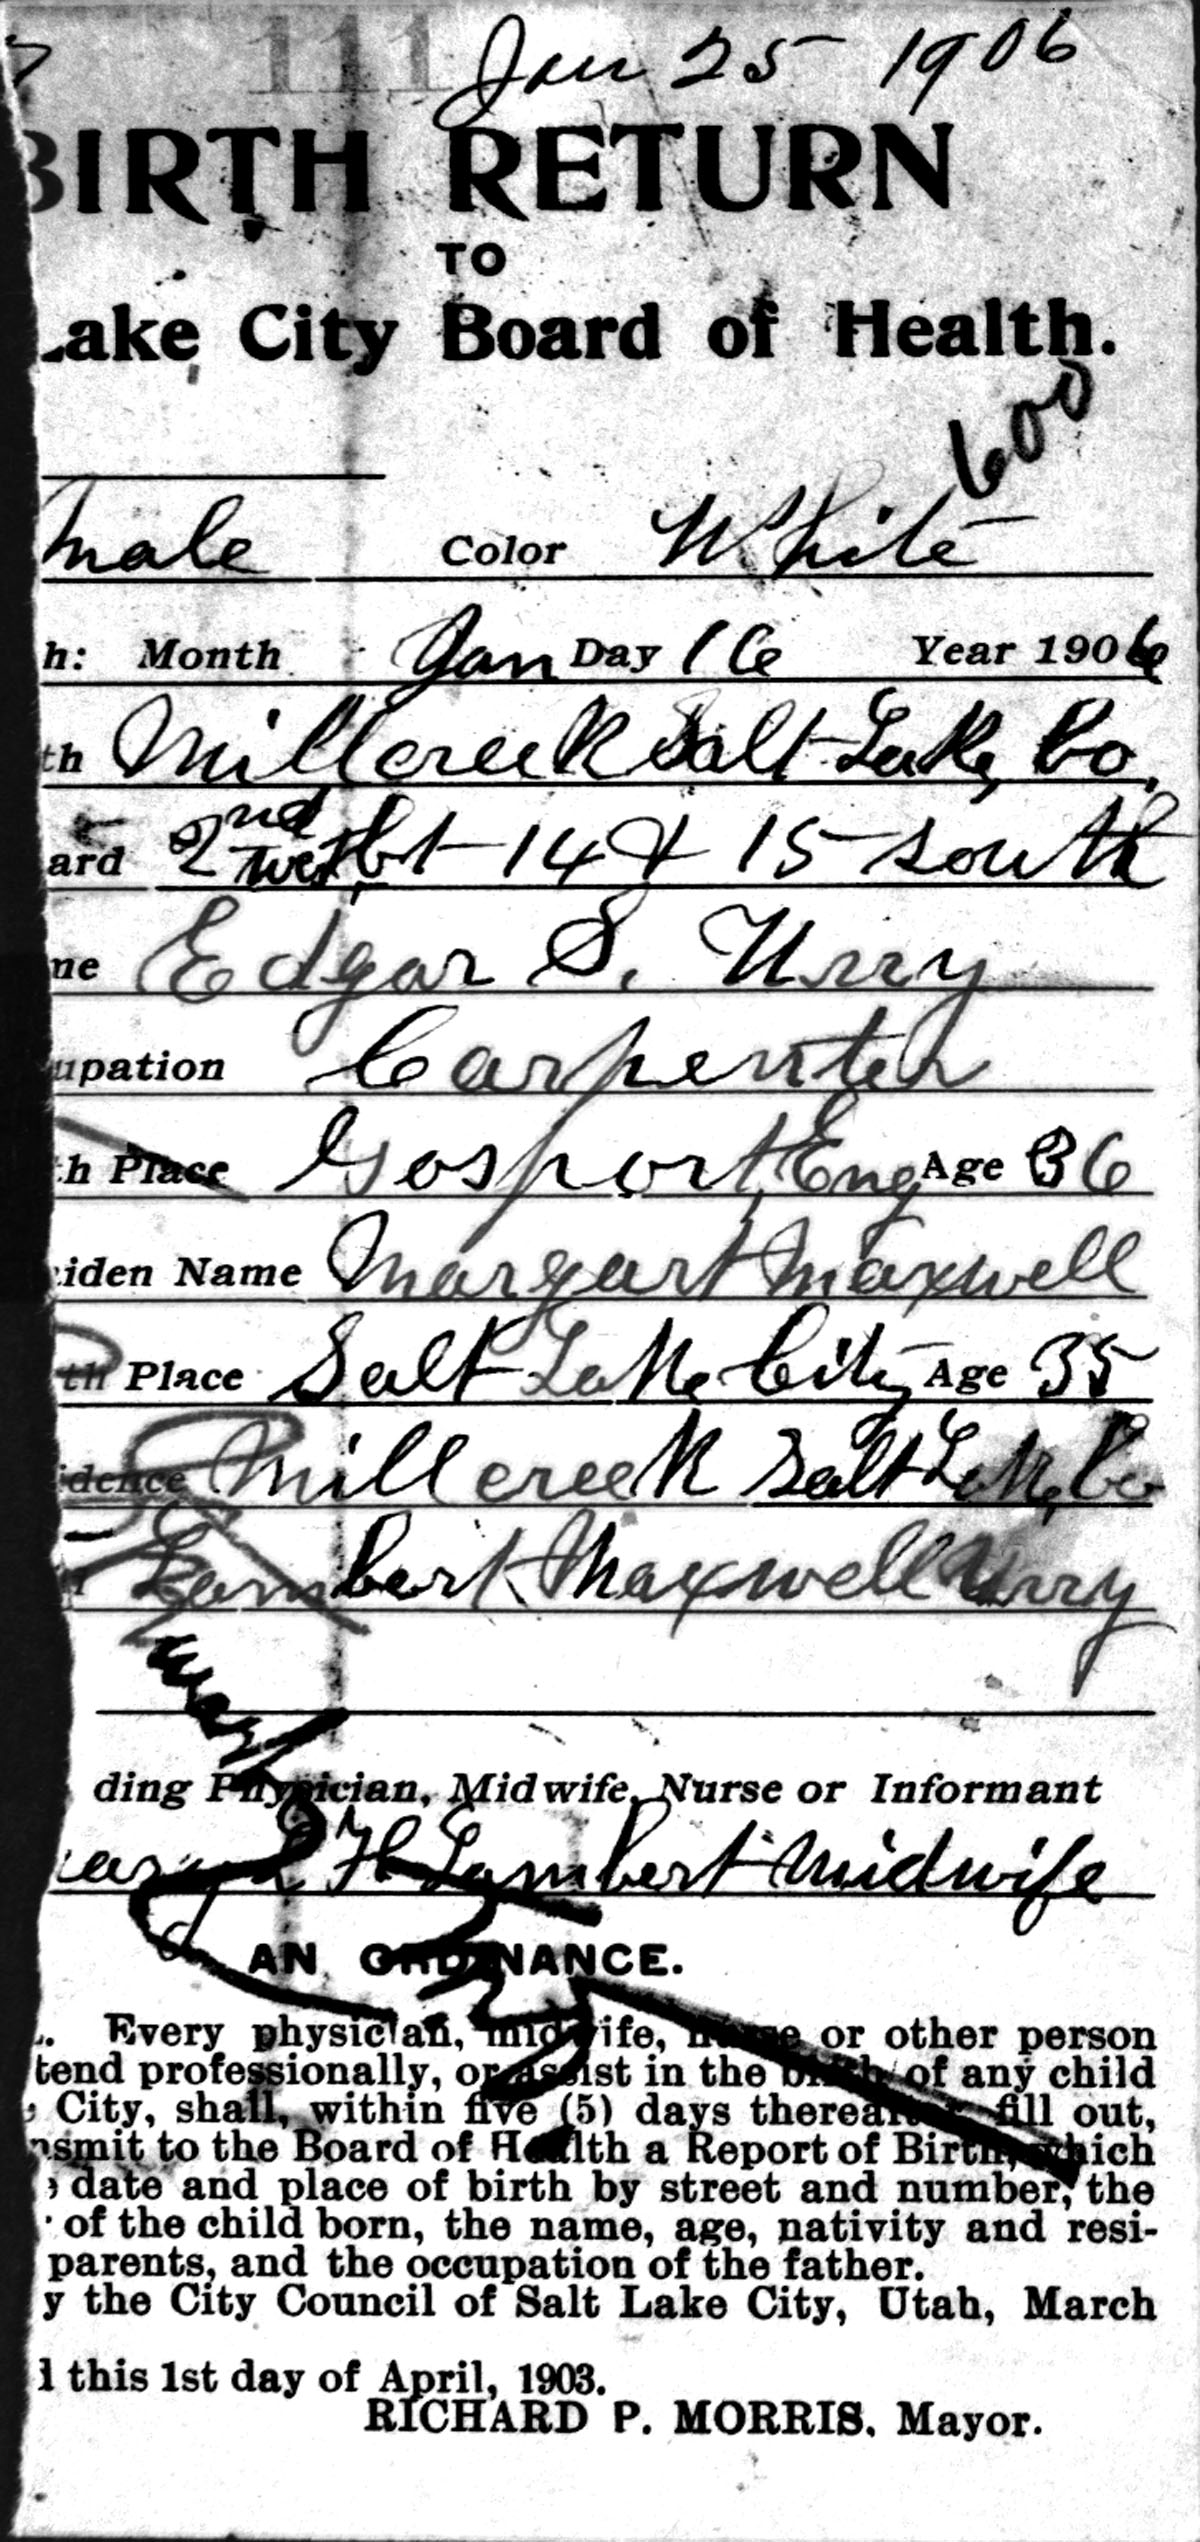 111 Jan 25 1906
BIRTH RETURN
TO
Lake City Board of Health.
600
male Color White
h: Month Jan Day 16 Year 1906
th Millcreek Salt Lake, Co.
ard 2nd West, bt 14 & 15 South
me Edgar S. Urry
upation Carpenter
th Place Gosport, Eng Age 36
iden Name Margart Maxwell
th Place Salt Lake City Age 35
idence Millcreek Salt Lake, Co
Lambert Maxwell Urry
ding Physician, Midwife, Nurse or Informant
H Lambert Midwife
AN ORDINANCE.
. Every physician, midwife, nurse or other person
tend professionally, or assist in the birth of any child
City, shall, within five (5) days thereafter, fill out,
nsmit to the Board of Health a Report of Birth, which
date and place of birth by street and number, the
of the child born, the name, age, nativity and resi-
parents, and the occupation of the father.
y the City Council of Salt Lake City, Utah, March
d this 1st day of April, 1903.
RICHARD P. MORRIS, Mayor.